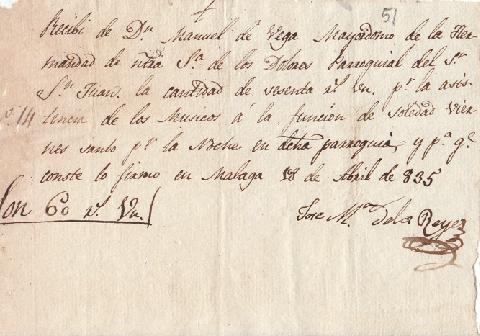 51
Recibi de Dn. Manuel de Vega Mayordomo de la Her-
mandad de ntra Sra de los Dolores Parroquial del Sr.
Sn. Juan, la cantidad de sesenta rs. vn. pr. la asis-
tencia de los Musicos á la funcion de soledad Vier-
nes santo pr. la Noche en dcha parroquia, y pa. qe.
conste lo firmo en Malaga 18 de Abril de 835
Son 60 rs. Vn.
Jose Ma. de la Reyes